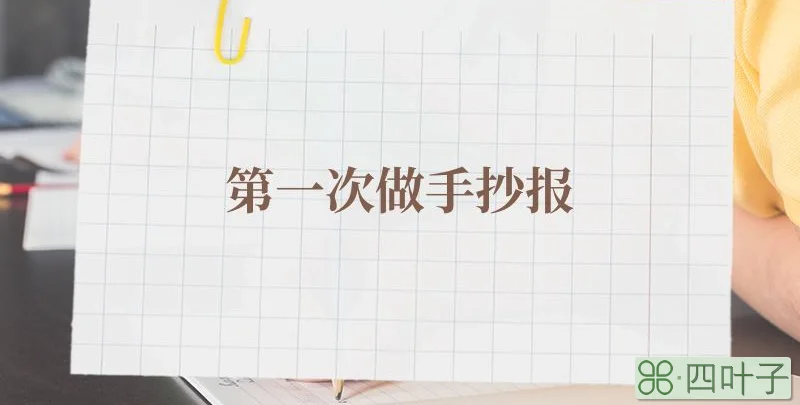 第一次做手抄报
四叶子